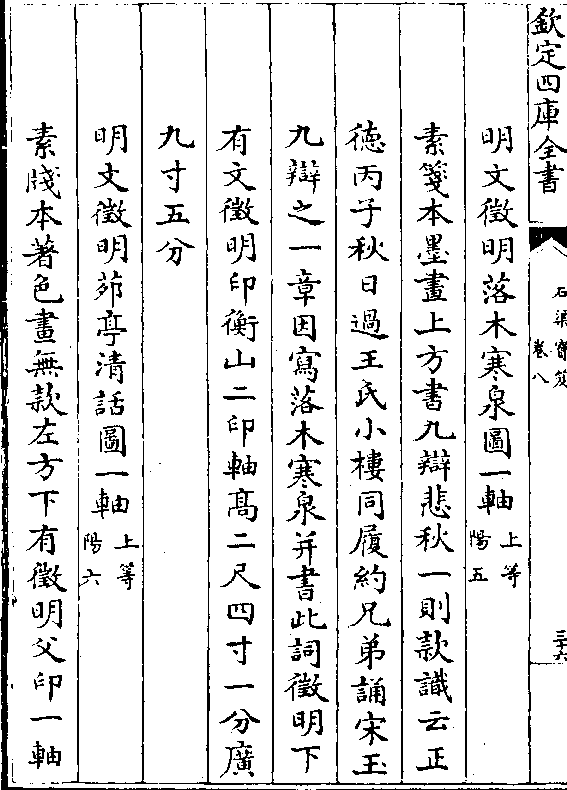 欽定四庫全書
石渠寶笈
卷八
三十六
明文徵明落木寒泉圖一軸 上等 陽五
素箋本墨畫上方書九辯悲秋一則款識云正
德丙子秋日過王氏小樓同履約兄弟誦宋玉
九辯之一章因寫落木寒泉并書此詞徵明下
有文徵明印衡山二印軸髙二尺四寸一分廣
九寸五分
明文徵明茆亭清話圖一軸 上等 陽六
素牋本著色畫無款左方下有徵明父印一軸